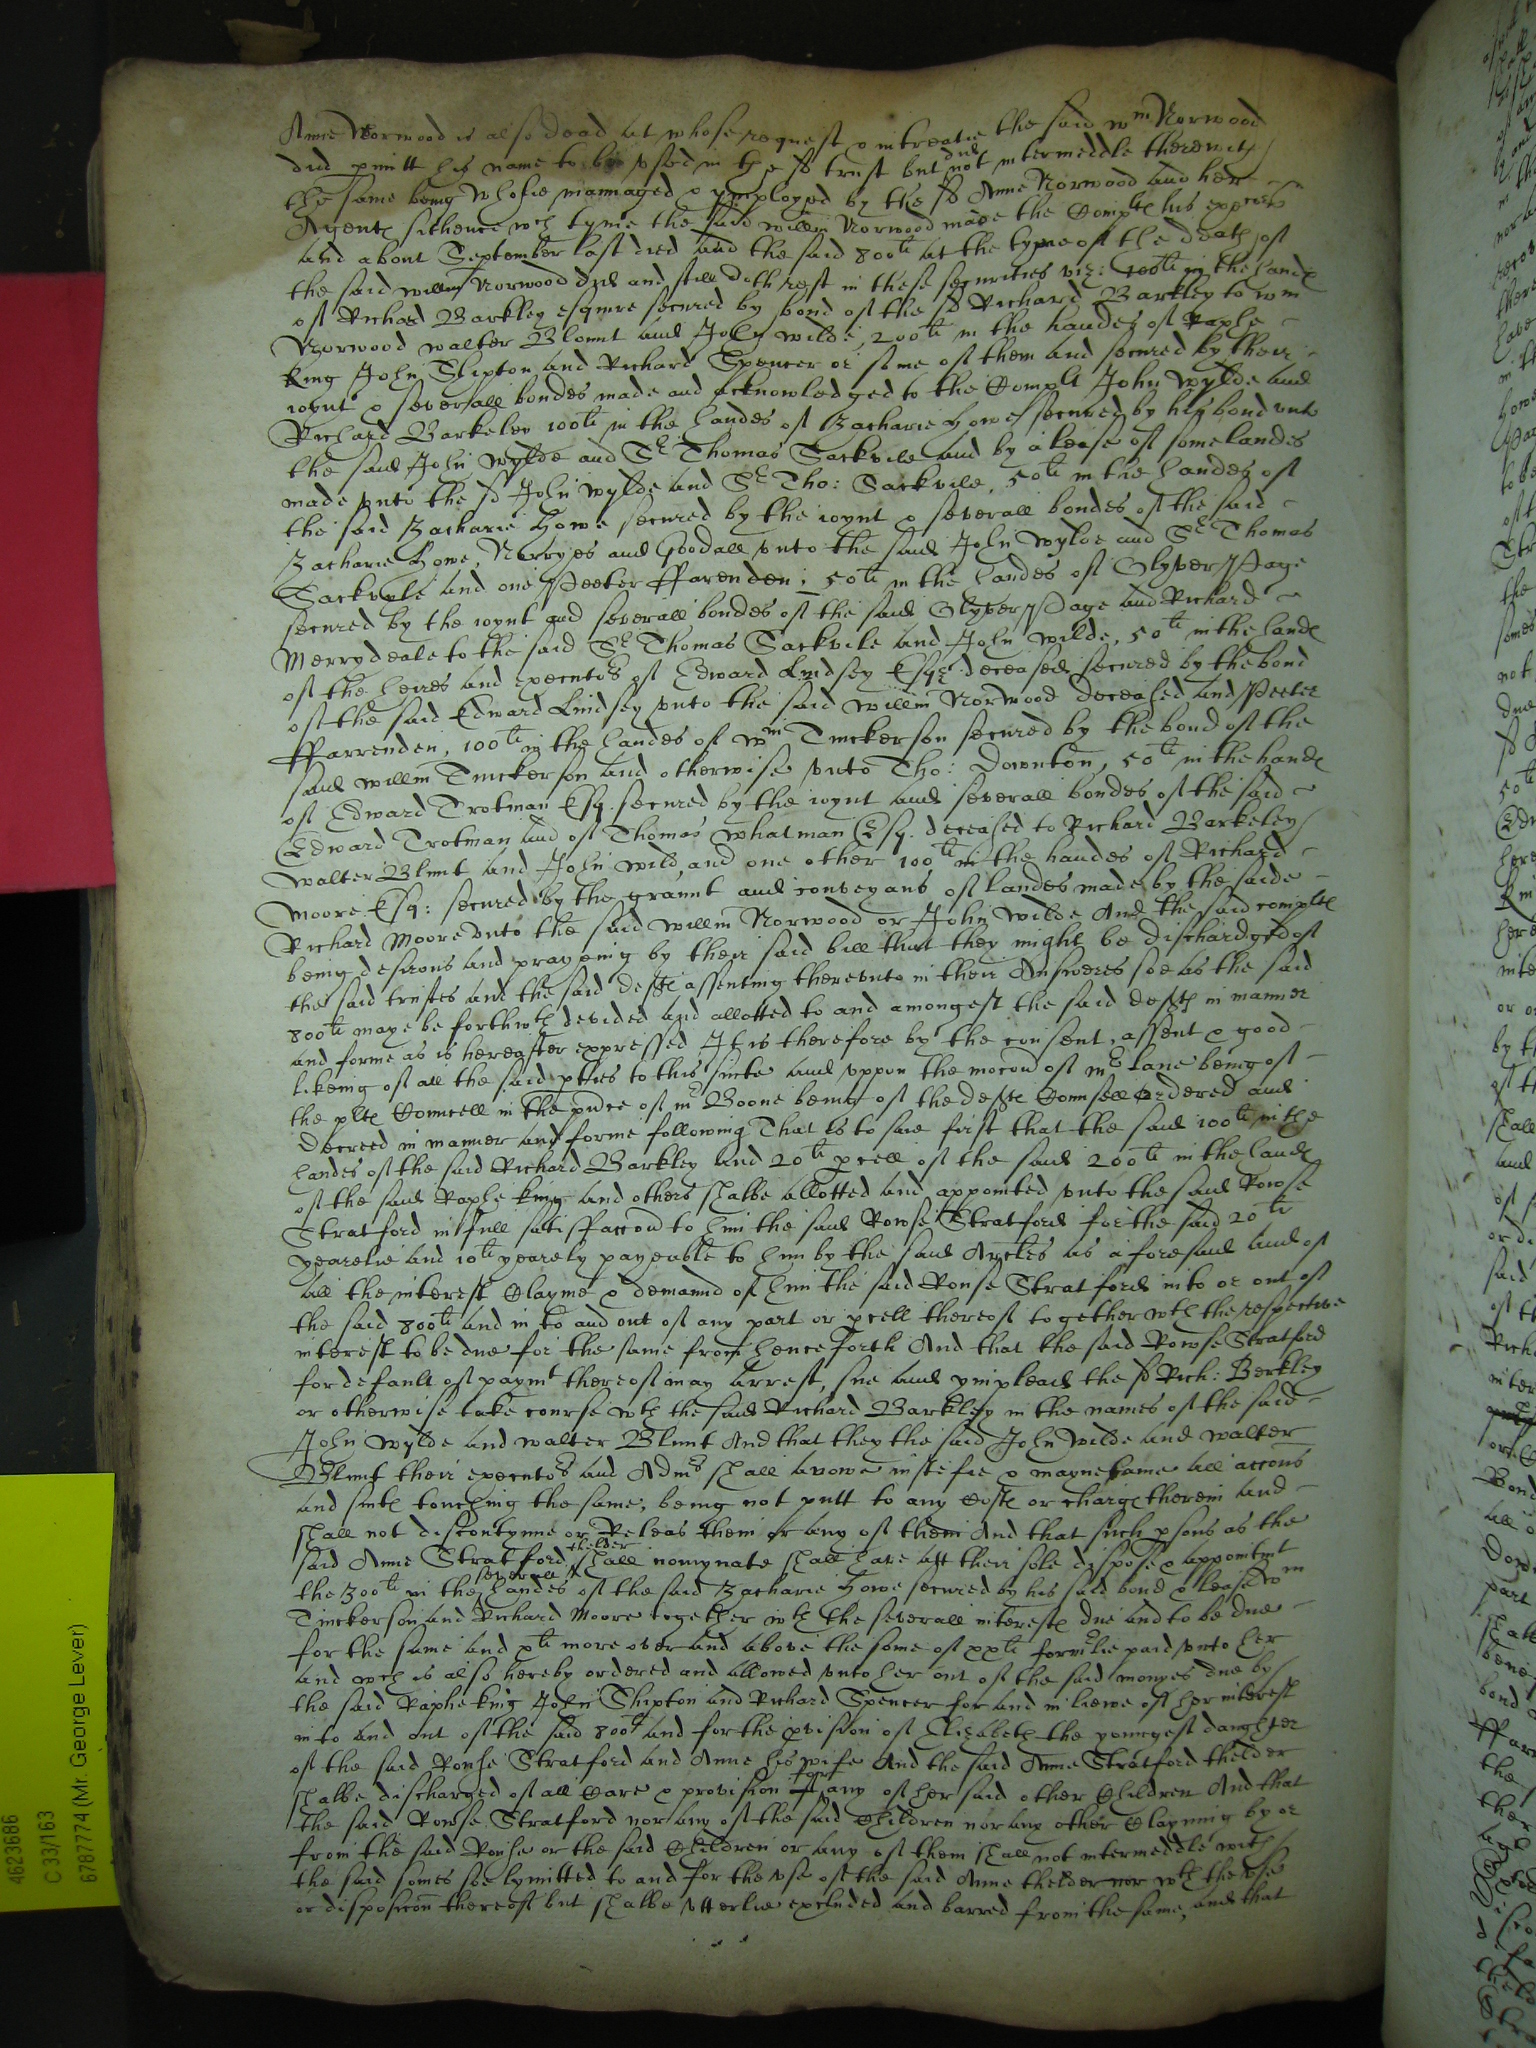 Anne Norwood is also dead at whose request & intreatie the said Wm Norwood
did pmitt his name to be vsed in the sd trust but did not intermeddle therewith
the same being wholie mannaged & ymployed by the sd Anne Norwood and her
Agents sithence wch tyme the said Willm Norwood made the Complt his exectrs
and about September last died and the said 800li at the tyme of the death of
the said Willm Norwood did and still doth rest in these securities viz: 100li in the hands
of Richard Barkley esquire secured by bond of the sd Richard Barkley to Wm
Norwood Walter Blount and John Wilde, 200li in the handes of Raphe
King John Shipton and Richard Spencer or some of them and secured by their
ioynt & severall bondes made and acknowledged to the Complt John Wylde and
Richard Barkeley 100li in the handes of Zacharie Howe secured by his bond vnto
the said John Wylde and Sr Thomas Sackvile and by a lease of some landes
made vnto the sd John Wylde and Sr Tho: Sackvile, 50li in the handes of
the said Zacharie Howe secured by the ioynt & severall bondes of the said
Zacharie Howe, Norryes and Goodall vnto the said John Wylde and Sr Thomas
Sackvyle and one Peeter ffarenden; 50li in the handes of Olyver Page
secured by the ioynt and severall bondes of the said Olyver Page and Richard
Merrydeale to the said Sr Thomas Sackvile and John Wilde, 50li in the hands
of the heires and executors of Edward Lindsey Esqr deceased secured by the bond
of the said Edward Lindsey vnto the said Willm Norwood deceased and Peeter
ffarrenden, 100li in the handes of Wm Tinckerson secured by the bond of the
said Willm Tinckerson and otherwise vnto Tho: Downton, 50li in the hands
of Edward Trotman Esq. secured by the ioynt and severall bondes of the said
Edward Trotman and of Thomas Whatman Esq. deceased to Richard Barkeley
Walter Blunt and John Wild, and one other 100li in the handes of Richard
Moore Esq: secured by the graunt and conveyans of landes made by the saide
Richard Moore vnto the said Willm Norwood or John Wilde And the said complts
being desirous and prayeing by their said bill that they might be dischardged of
the said trustes and the said defts assenting therevnto in their Answeres soe as the said
800li maye be forthwth devided and allotted to and amongest the said defts in manner
and forme as is hereafter expressed It is therefore by the consent, assent & good
likeing of all the said pties to this suite and vppon the mocon of Mr Lane being of
the plts Councell in the pnce of Mr Boone being of the defts Counsell ordered and
decreed in manner and forme following That is to saie first that the said 100li in the
handes of the said Richard Barkley and 20li pcell of the said 200li in the hands
of the said Raphe King and others shalbe allotted and appointed vnto the said Rowse
Stratford in full satisfaccon to him the said Rowse Stratford for the said 20li
yearelie and 10li yearely payeable to him by the said Arcles as aforesaid and of
all the interest Clayme & demaund of him the said Rouse Stratford into or out of
the said 800li and in to and out of any part or pcell thereof together wth the respective
interest to be due for the same from henceforth And that the said Rowse Stratford
for default of paymt thereof may arrest, sue and ympleade the sd Rich: Berkley
or otherwise take course wth the said Richard Barkley in the names of the said
John Wylde and Walter Blunt And that they the said John Wilde and Walter
Blunt their executors and Adms shall avowe iustefie & maynetaine all accons
and suits touching the same, being not putt to any Costs or charge therein and
shall not discontynue or Releas them or any of them And that such psons as the
said Anne Stratford thelder shall nomynate shall have att their sole dispose & appointmt
the 300li in the severall handes of the said Zacharie Howe secured by his said bond & lease Wm
Tinckerson and Richard Moore together wth the severall interests due and to be due
for the same and xli more over and above the some of xxli formrlie paid vnto her
and wch is also hereby ordered and allowed vnto her out of the said monyes due by
the said Raphe King John Shipton and Richard Spencer for and in liewe of her interest
in to and out of the said 800li and for the pvision of Elizabeth the youngest daughter
of the said Rouse Stratford and Anne his wife And the said Anne Stratford thelder
shalbe discharged of all Care & provision for any of her said other Children And that
the said Rowse Stratford nor any of the said Children nor any other Clayming by or
from the said Rouse or the said Children or any of them shall not intermeddle with
the said somes soe lymitted to and for the vse of the said Anne thelder nor wth the vse
or disposicon thereof but shalbe vtterlie excluded and barred from the same, and that
4623686
C 33/163
6787774 (Mr. George Lever)